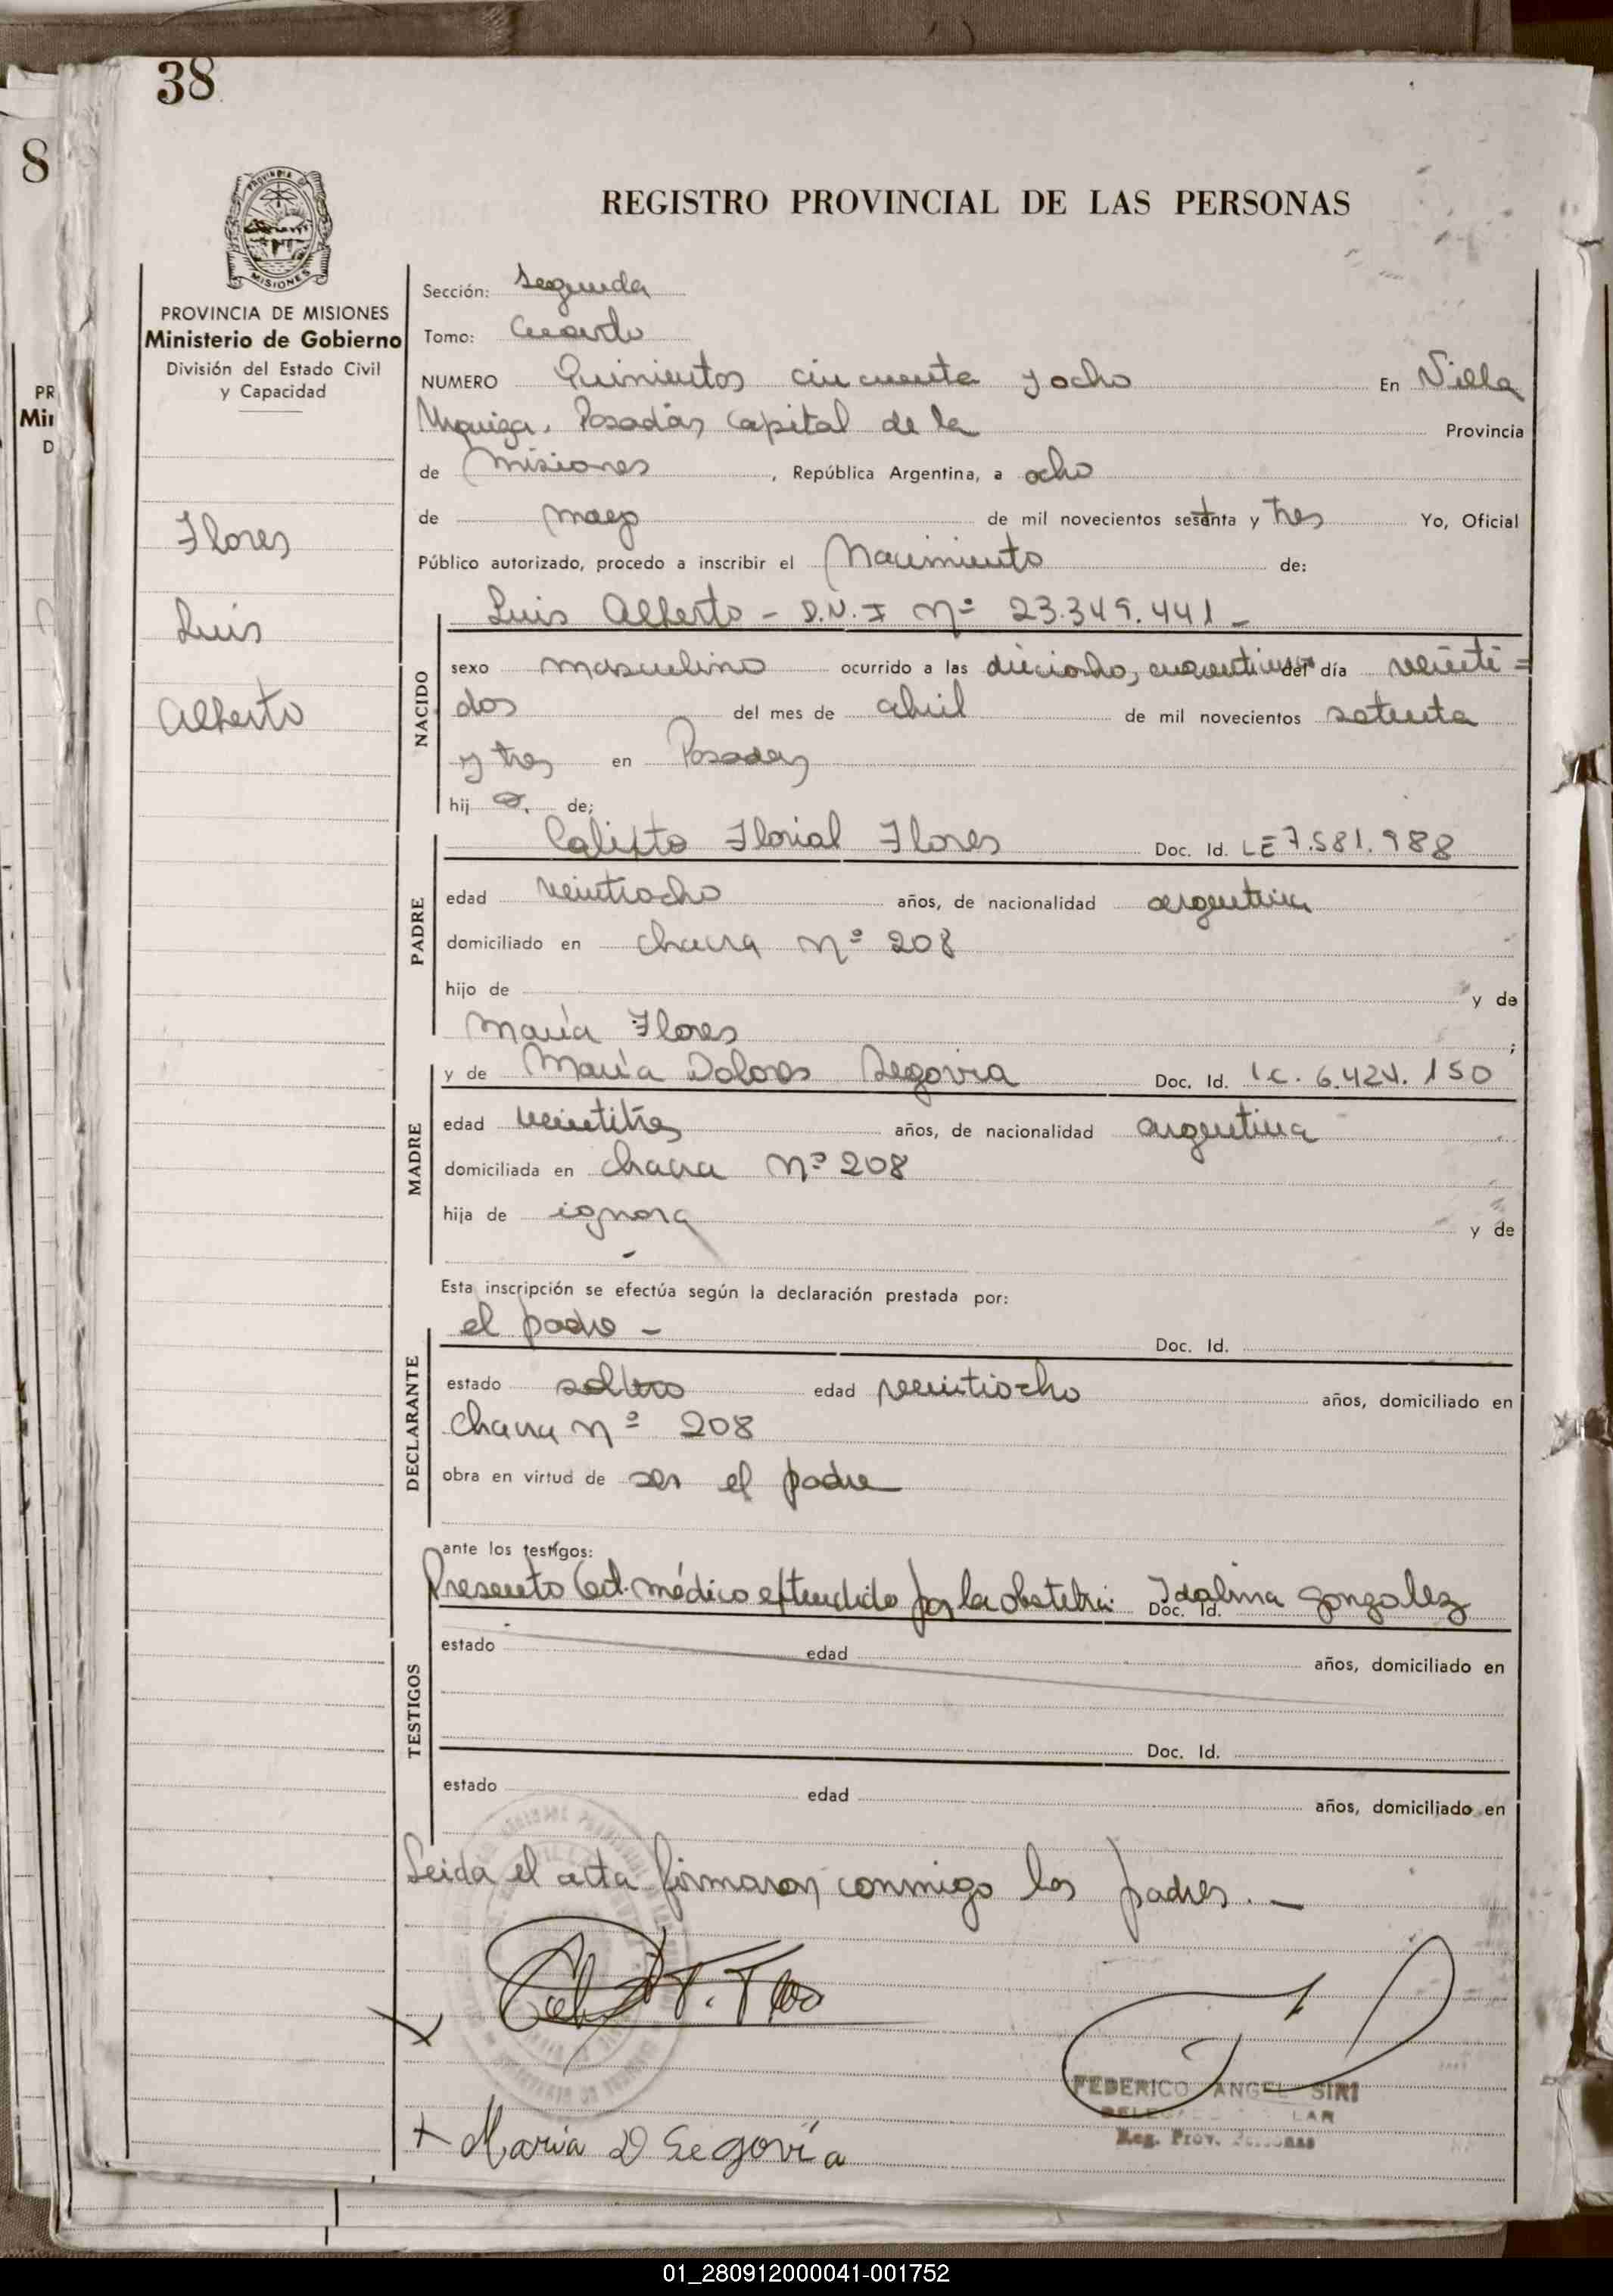 38
8
PROVINCIA DE
MISIONES
REGISTRO PROVINCIAL DE LAS PERSONAS
PROVINCIA DE MISIONES
Ministerio de Gobierno
División del Estado Civil
y Capacidad
PR
Min
D
Flores
Luis
Alberto
Sección: Segunda
Tomo: Cuarto
NUMERO Quinientos cincuenta y ocho En Villa
Urquiza, Posadas, capital de la Provincia
de Misiones, República Argentina, a ocho
de mayo de mil novecientos setenta y tres Yo, Oficial
Público autorizado, procedo a inscribir el Nacimiento de:
Luis Alberto - D.N.I Nº 23.349.441 -
NACIDO
sexo masculino ocurrido a las dieciocho, del día veinti=
dos del mes de abril de mil novecientos setenta
y tres en Posadas
hij o. de;
PADRE
Calixto Florial Flores Doc. Id. LE 7.581.988
edad veintiocho años, de nacionalidad argentina
domiciliado en chacra Nº 208
hijo de y de
María Flores ;
MADRE
y de María Dolores Segovia Doc. Id. 6.424.150
edad veintitres años, de nacionalidad argentina
domiciliada en chacra Nº 208
hija de ignora y de
Esta inscripción se efectúa según la declaración prestada por:
DECLARANTE
el padre - Doc. Id.
estado soltero edad veintiocho años, domiciliado en
Chacra Nº 208
obra en virtud de ser el padre
ante los testigos:
TESTIGOS
Presento Cert. médico extendido por la obstetra: Idalina Gonzalez Doc. Id.
estado edad años, domiciliado en
Doc. Id.
estado edad años, domiciliado en
Leida el acta firmaron conmigo los padres. -
FEDERICO ANGEL SIRI
Reg. Prov. Personas
+ María D Segovia
01_280912000041-001752